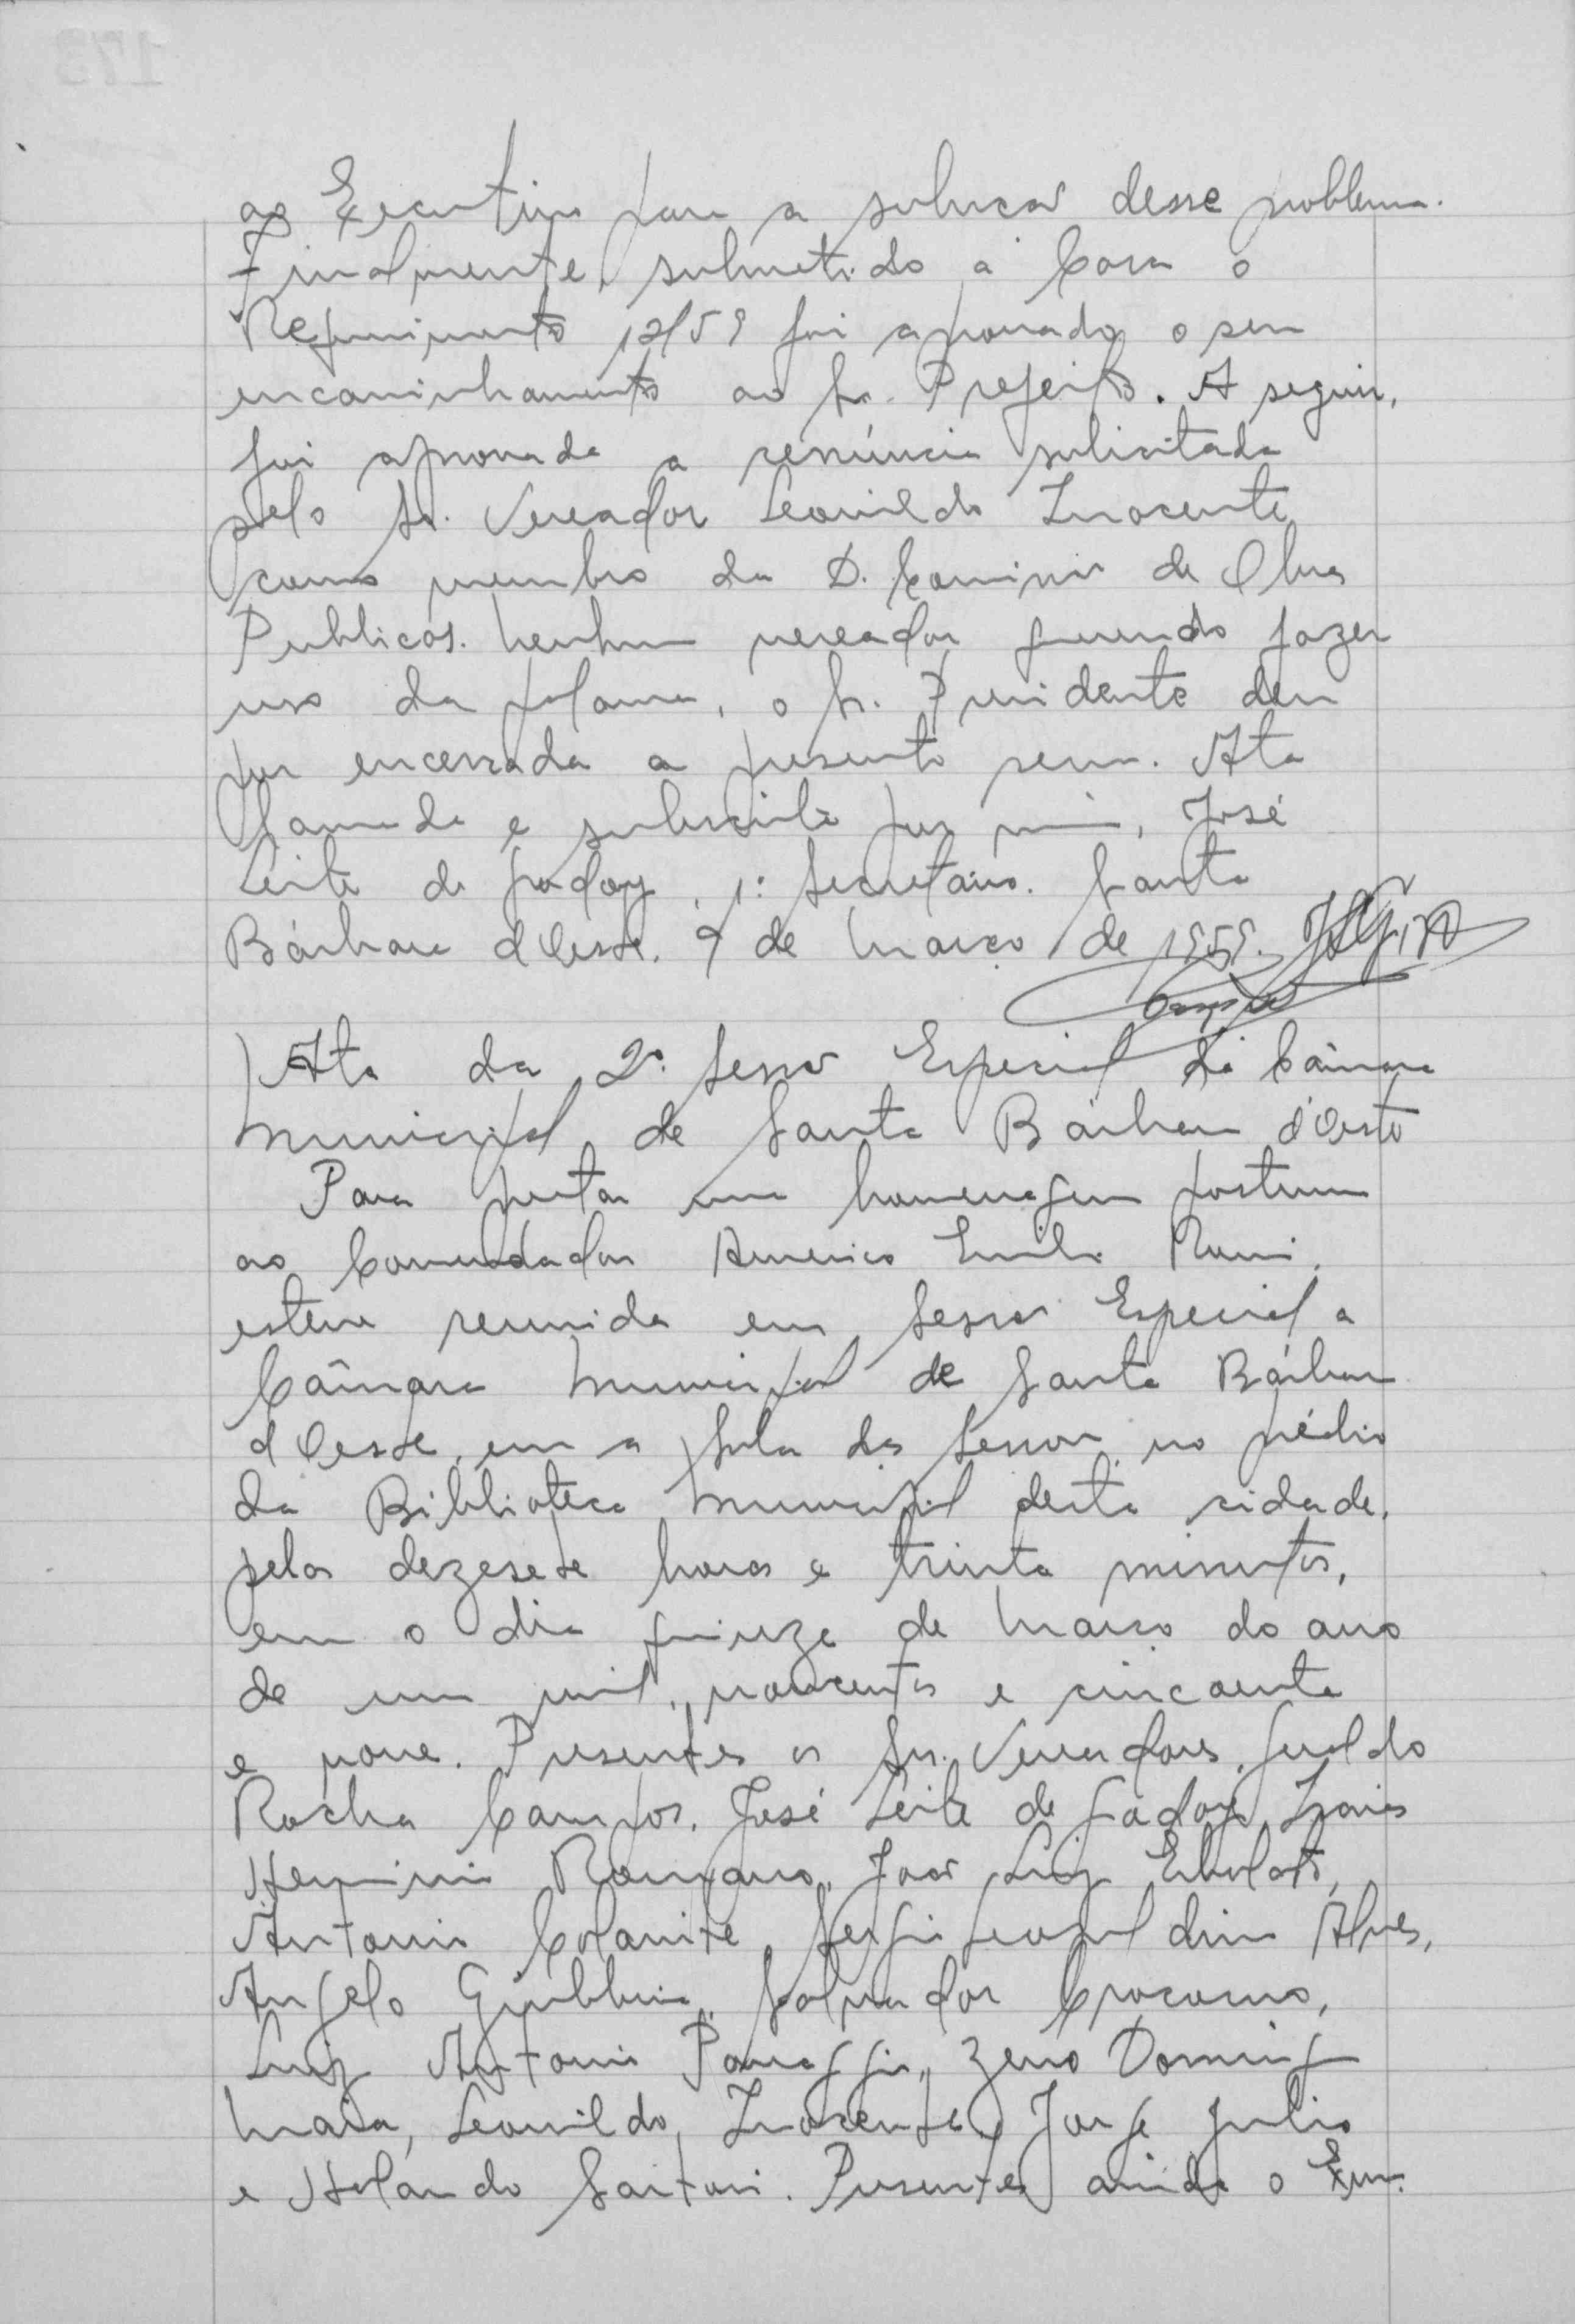 ao Executivo para a solução desse problema.
Finalmente, submetido a Casa o
Requerimento 12/59 foi aprovado o seu
encaminhamento ao Sr. Prefeito. A seguir,
foi aprovada a renúncia solicitada
pelo Sr. Vereador Leonildo Inocente
como membro da D. Comissão de Obras
Publicas. Nenhum vereador querendo fazer
uso da palavra, o Sr. Presidente deu
por encerrada a presente sessão. Ata
lavrada e subscrita por mim, José
Leite de Godoy, 1º Secretário. Santa
Bárbara d'Oeste, 9 de Março de 1959.
Ata da 2ª Sessão Especial da Câmara
Municipal de Santa Bárbara d'Oeste
Para prestar uma homenagem postuma
ao Comendador Americo Emilio Romi,
esteve reunida em Sessão Especial a
Câmara Municipal de Santa Bárbara
d'Oeste, em a Sala das Sessões, no prédio
da Biblioteca Municipal desta cidade,
pelas dezesete horas e trinta minutos,
em o dia quinze de Março do ano
de um mil, novecentos e cincoenta
e nove. Presentes os Srs. Vereadores, Geraldo
Rocha Campos, José Leite de Godoy, Izaias
Herminio Romano, João Luiz
Antonio Sergio Leopoldino Alves,
Angelo Giubbina, Salvador Crocomo,
Luiz Antonio Panaggio, Zeno Domingos
Maia, Leonildo Inocente, Jorge Julio
e Holando Sartori. Presentes ainda o Exmo.
173